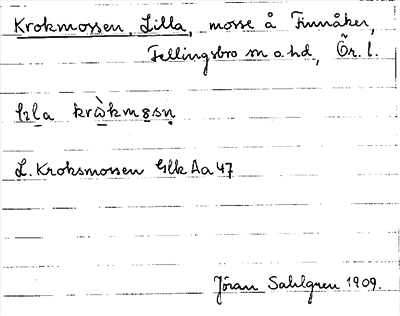 Krokmossen, Lilla, mosse å Finnåker,
Fellingsbro sn o. hd, Ör. l.
L. Kroksmossen Glk Aa 47
Jöran Sahlgren 1909.